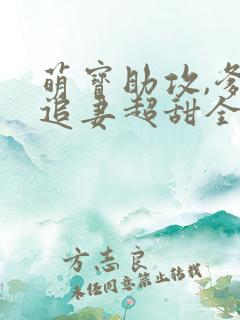 萌宝助攻,爹
追妻超甜全
方志良
未经同意禁止转载